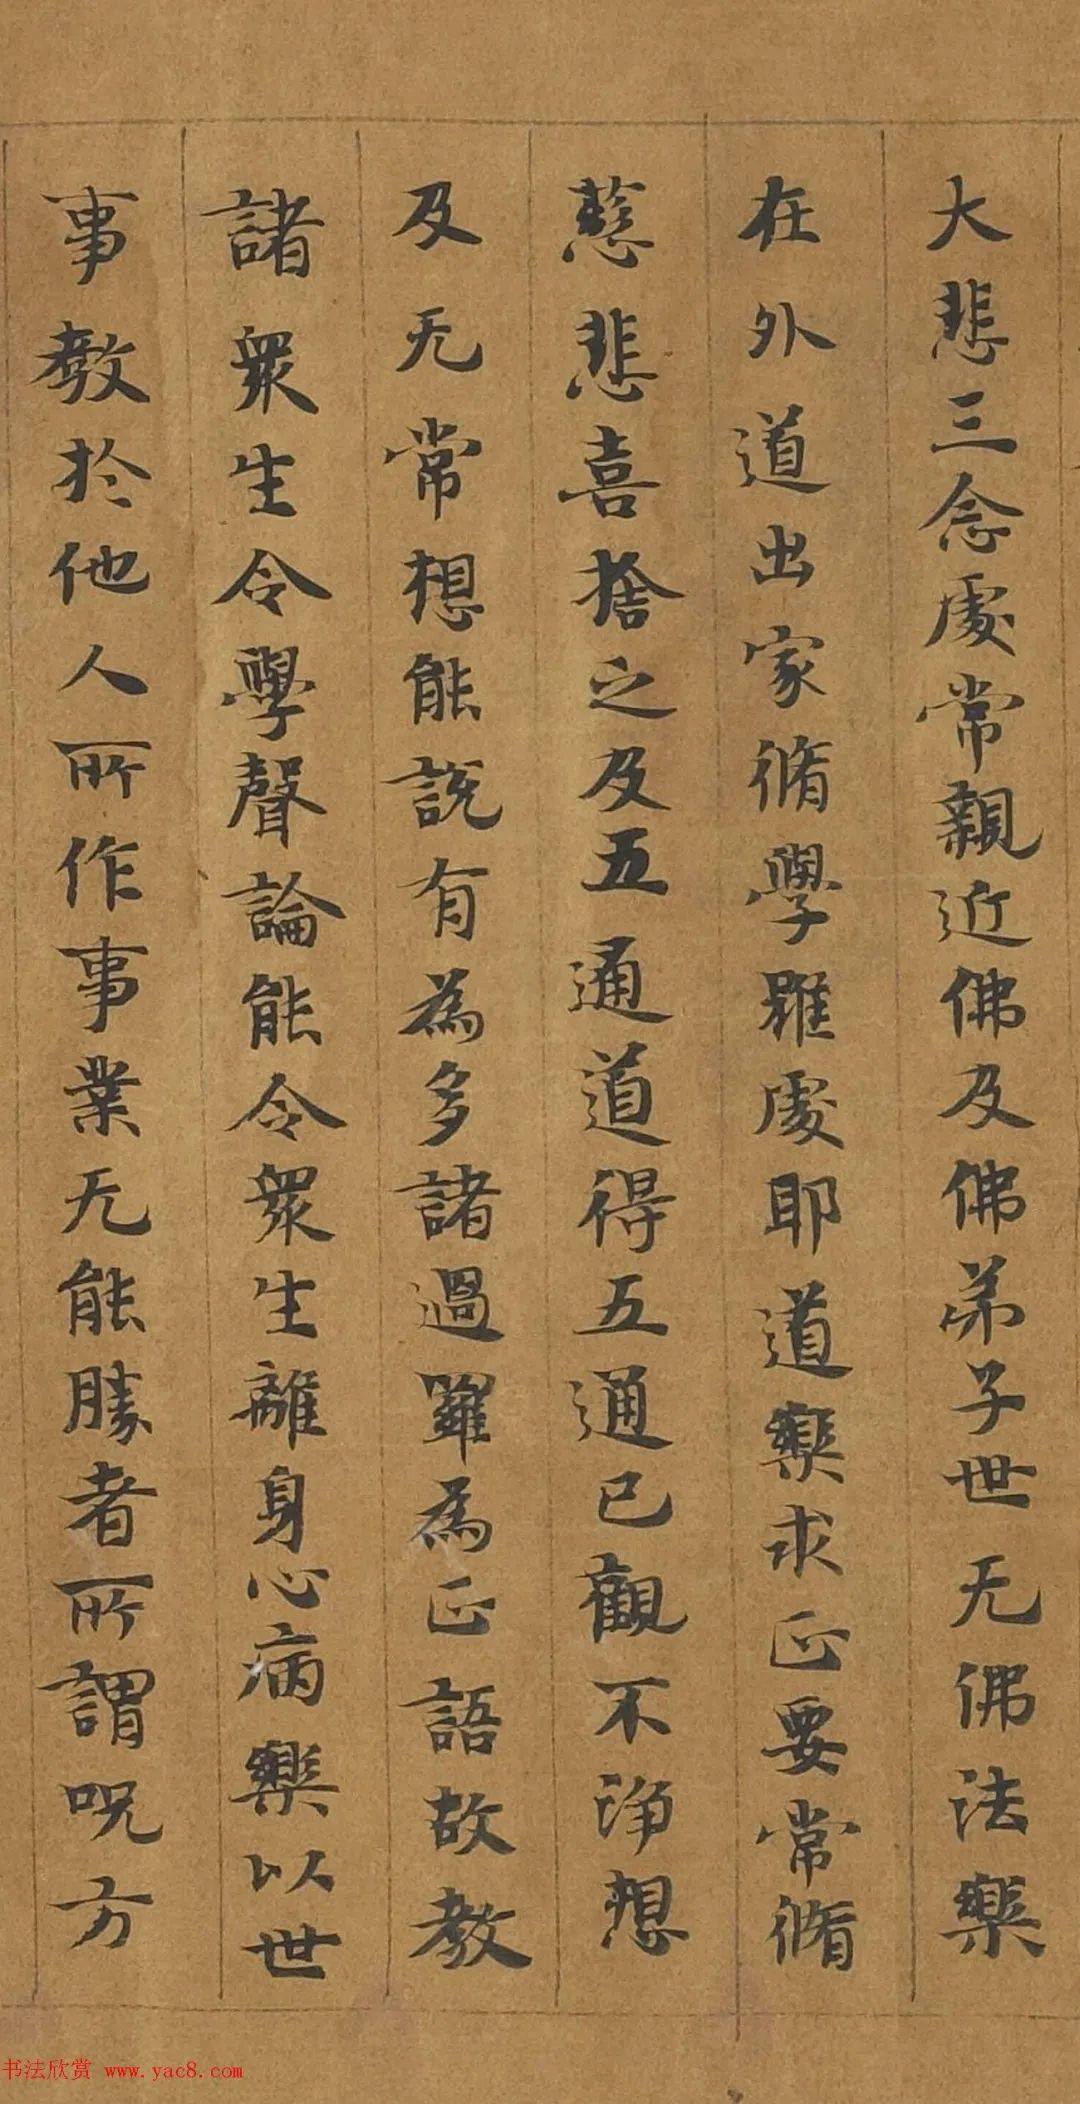 大悲三念處常親近佛及佛弟子世无佛法樂
在外道出家脩學雖處耶道樂求正要常脩
慈悲喜捨之及五通道得五通已觀不淨想
及无常想能說有為多諸過羅為正語故教
諸眾生令學聲論能令眾生離身心病樂以世
事教於他人所作事業无能勝者所謂呪方
书法欣赏 www.yac8.com